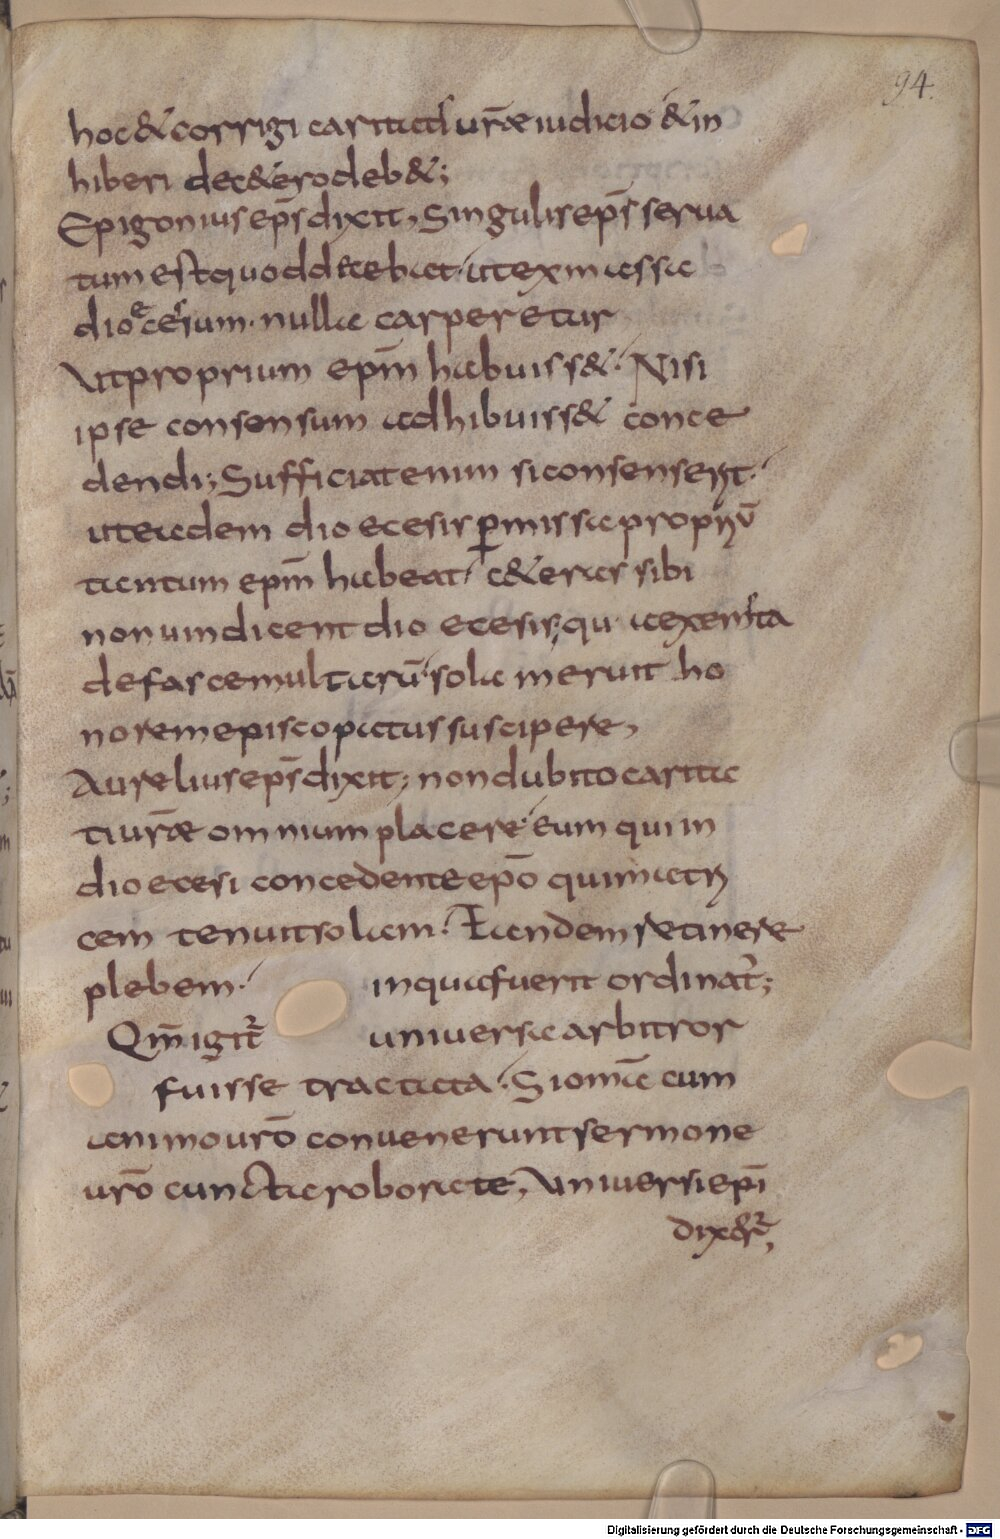 94.
hoc & corrigi caritatis urae iudicio & in
hiberi de c&ero deb&;
Epigonius eps dixit, Singulis eps serua
tum est quod decebat ut ex massa
dioecesium nulla carperetur
Ut proprium epm habuiss& Nisi
ipse consensum adhibuiss& conce
dendi; Sufficiat enim si consenserit
ut eadem dioecesis pmissa propriu
tantum epm habeat c&eras sibi
non uindicent dioecesis; qua exempta
de fasce multaru sola meruit ho
norem episcopatus suscipere,
Aurelius eps dixit; non dubito carita
ti urae omnium placere eum qui in
dioecesi concedente epo qui matri
cem tenuit solam Eandem retinere
plebem in qua fuerit ordinat;
Qm igit uniuersa arbitror
fuisse tractata Si omia cum
animo uro conuenerunt sermone
uro cuncta roborate, Uniuersi epi
dix&r,
Digitalisierung gefördert durch die Deutsche Forschungsgemeinschaft - DFG